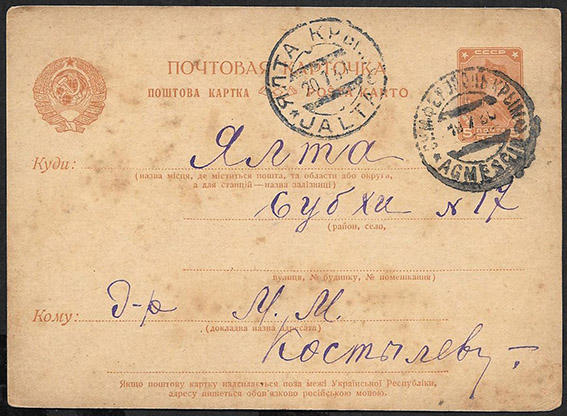 СССР
ПОЧТОВАЯ КАРТОЧКА
ПОШТОВА КАРТКА POŜTA KARTO
ЯЛТА КРЫМ
JALTA
СИМФЕРОПОЛЬ КРЫМ
AQMESÇIT
Куди: Ялта
(назва місця, де міститься пошта, та области або округа,
а для станцій—назва залізниці)
Субхи №17
(район, село,
вулиця, № будинку, № помешкання)
Кому: Д-р М. М.
(докладна назва адресата)
Костылеву
Якщо поштову картку надсилається поза межі Української Республіки,
адресу пишеться обов'язково російською мовою.